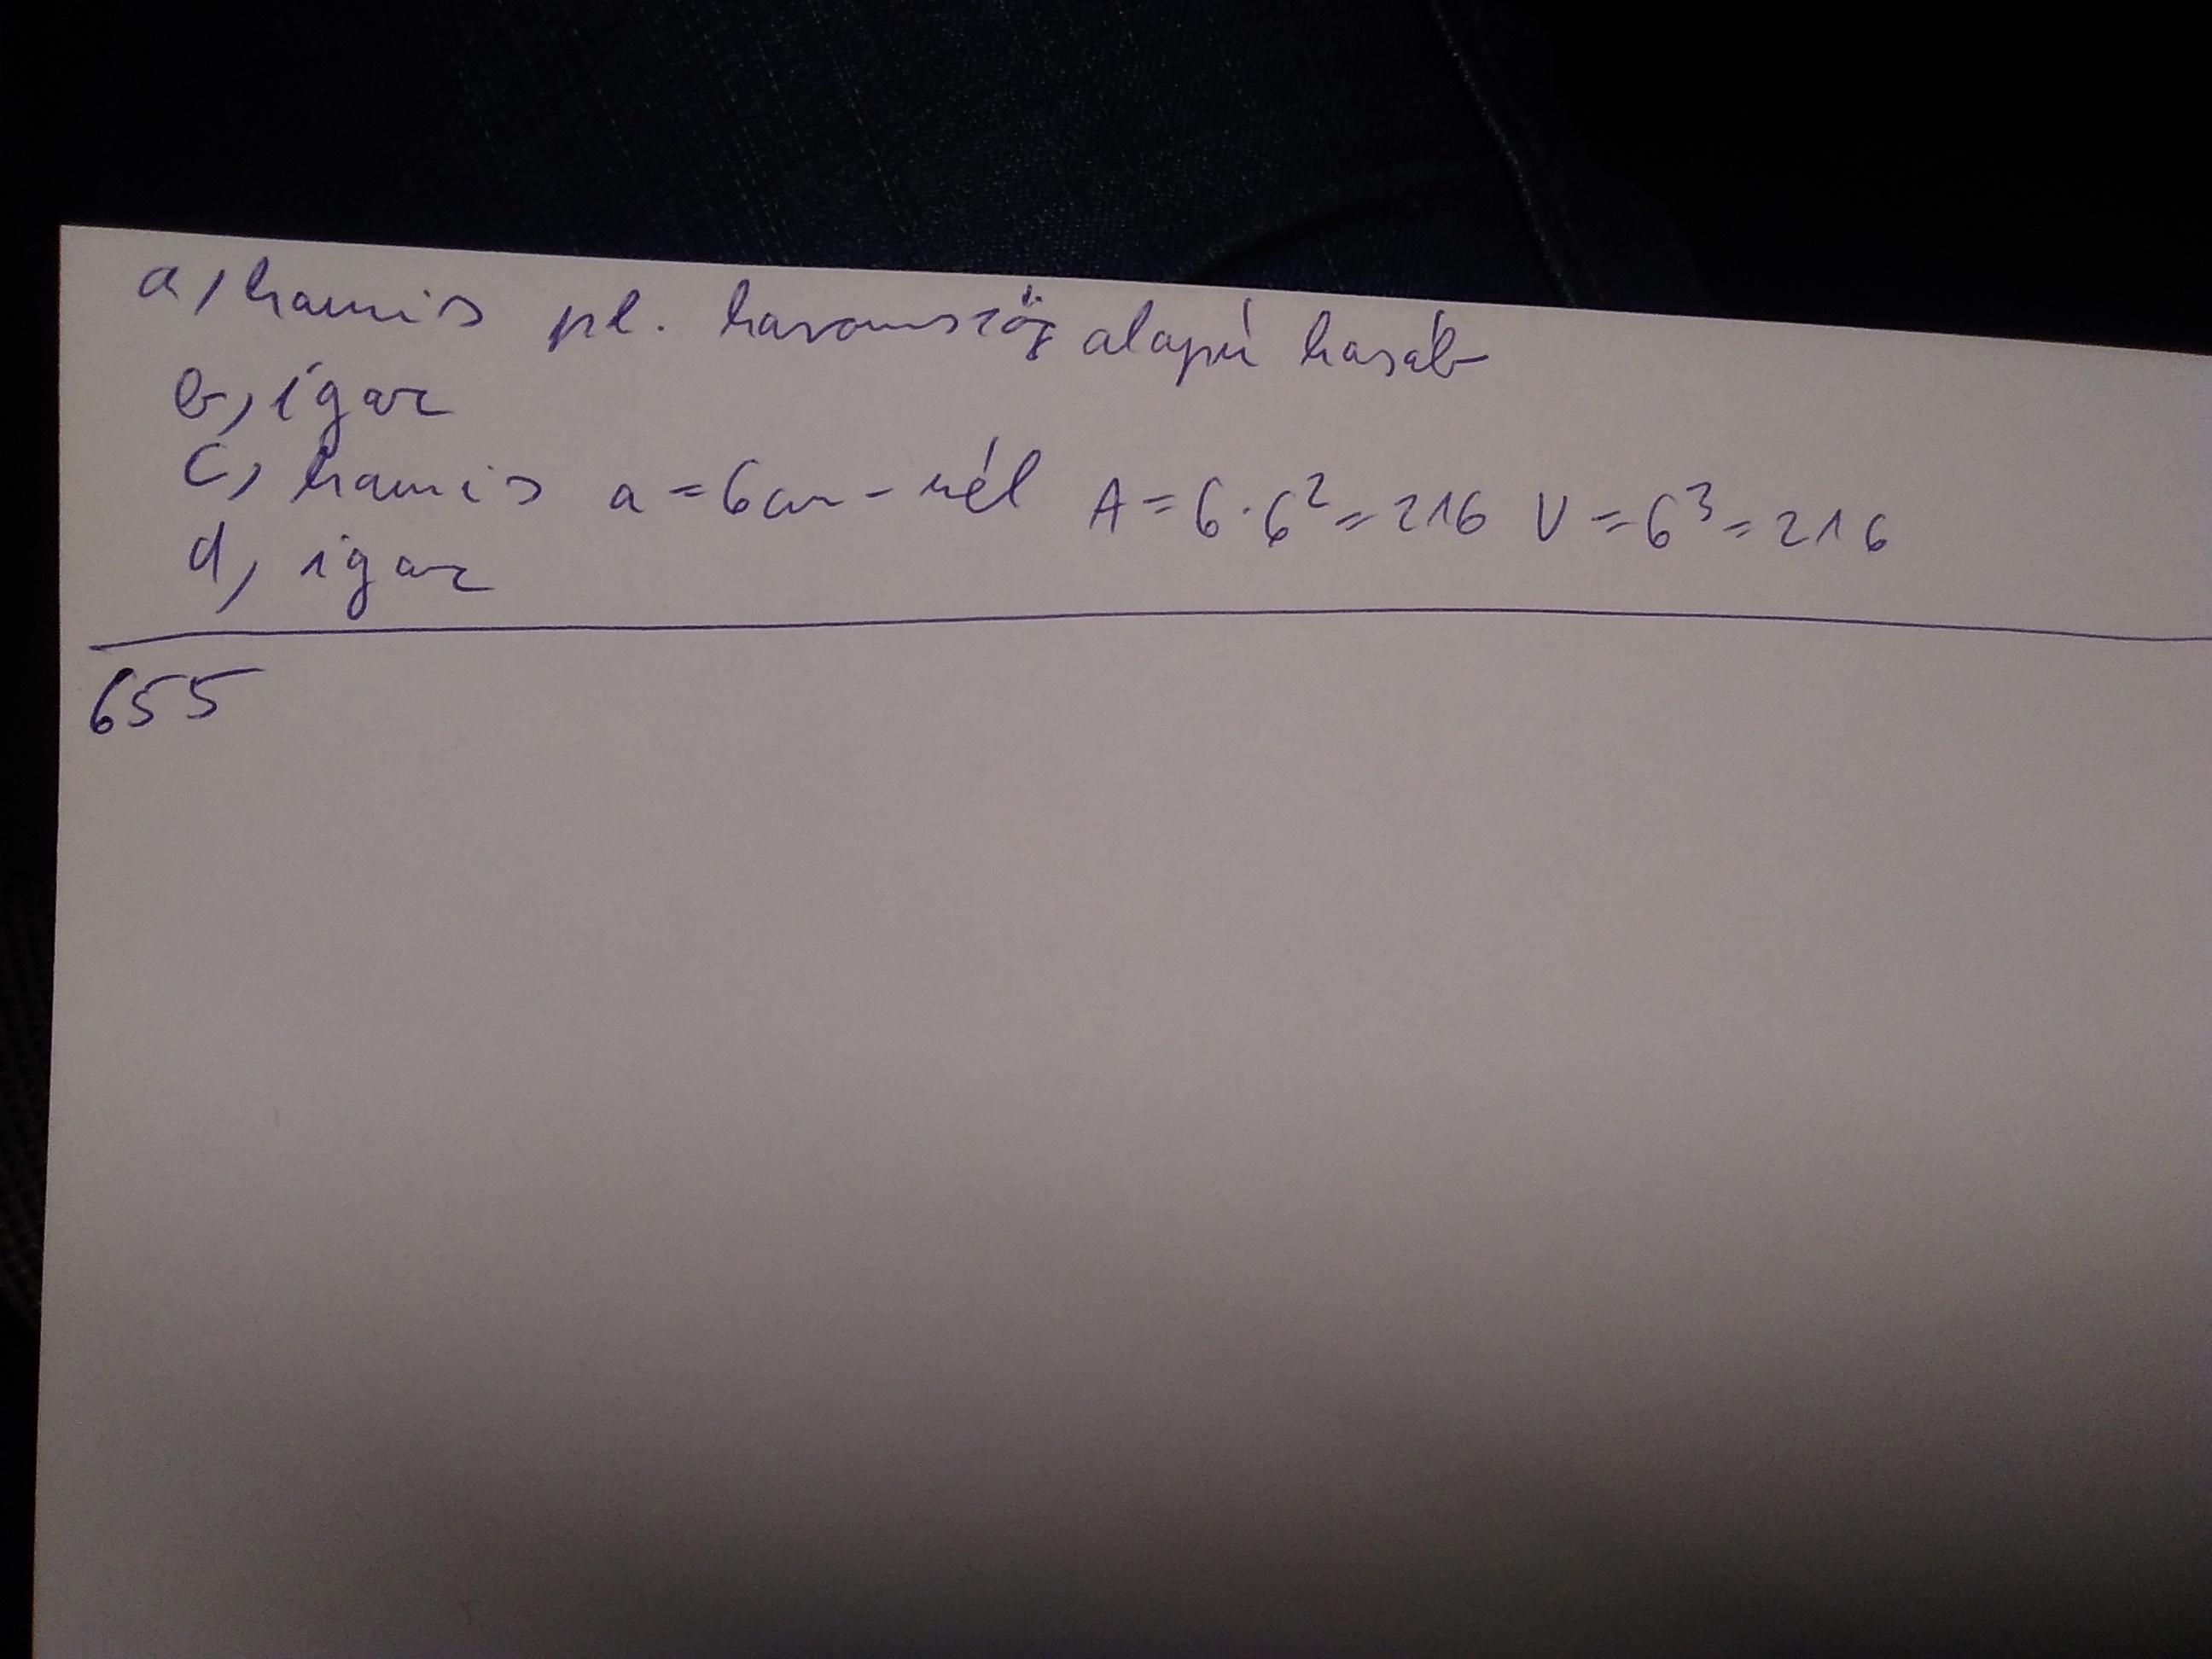 a, hamis pl. háromszög alapú hasáb
b, igaz
c, hamis a = 6cm-nél A = 6·6² = 216 V = 6³ = 216
d, igaz
655